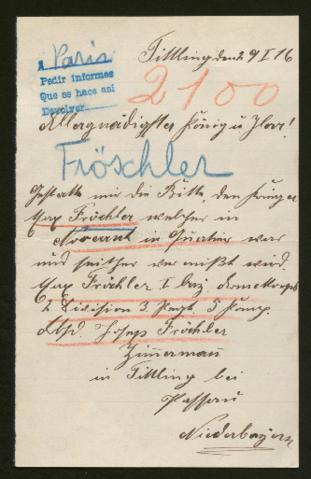 A Paris
Pedir informes
Que se hace asi
Devolver
Tittling den 29 I 16
2100
Allergnädigster König u Herr!
Fröschler
Gestatte mir die Bitte, den Krieger
Fröchler welcher in
in Quartier war
und seither vermißt wird.
Fröchler I bay. Armeekorps
2. Division 3. Regt. 5 Komp.
Absd. Josef Fröchler
Zimerman
in Tittling bei
Passau
Niederbayern